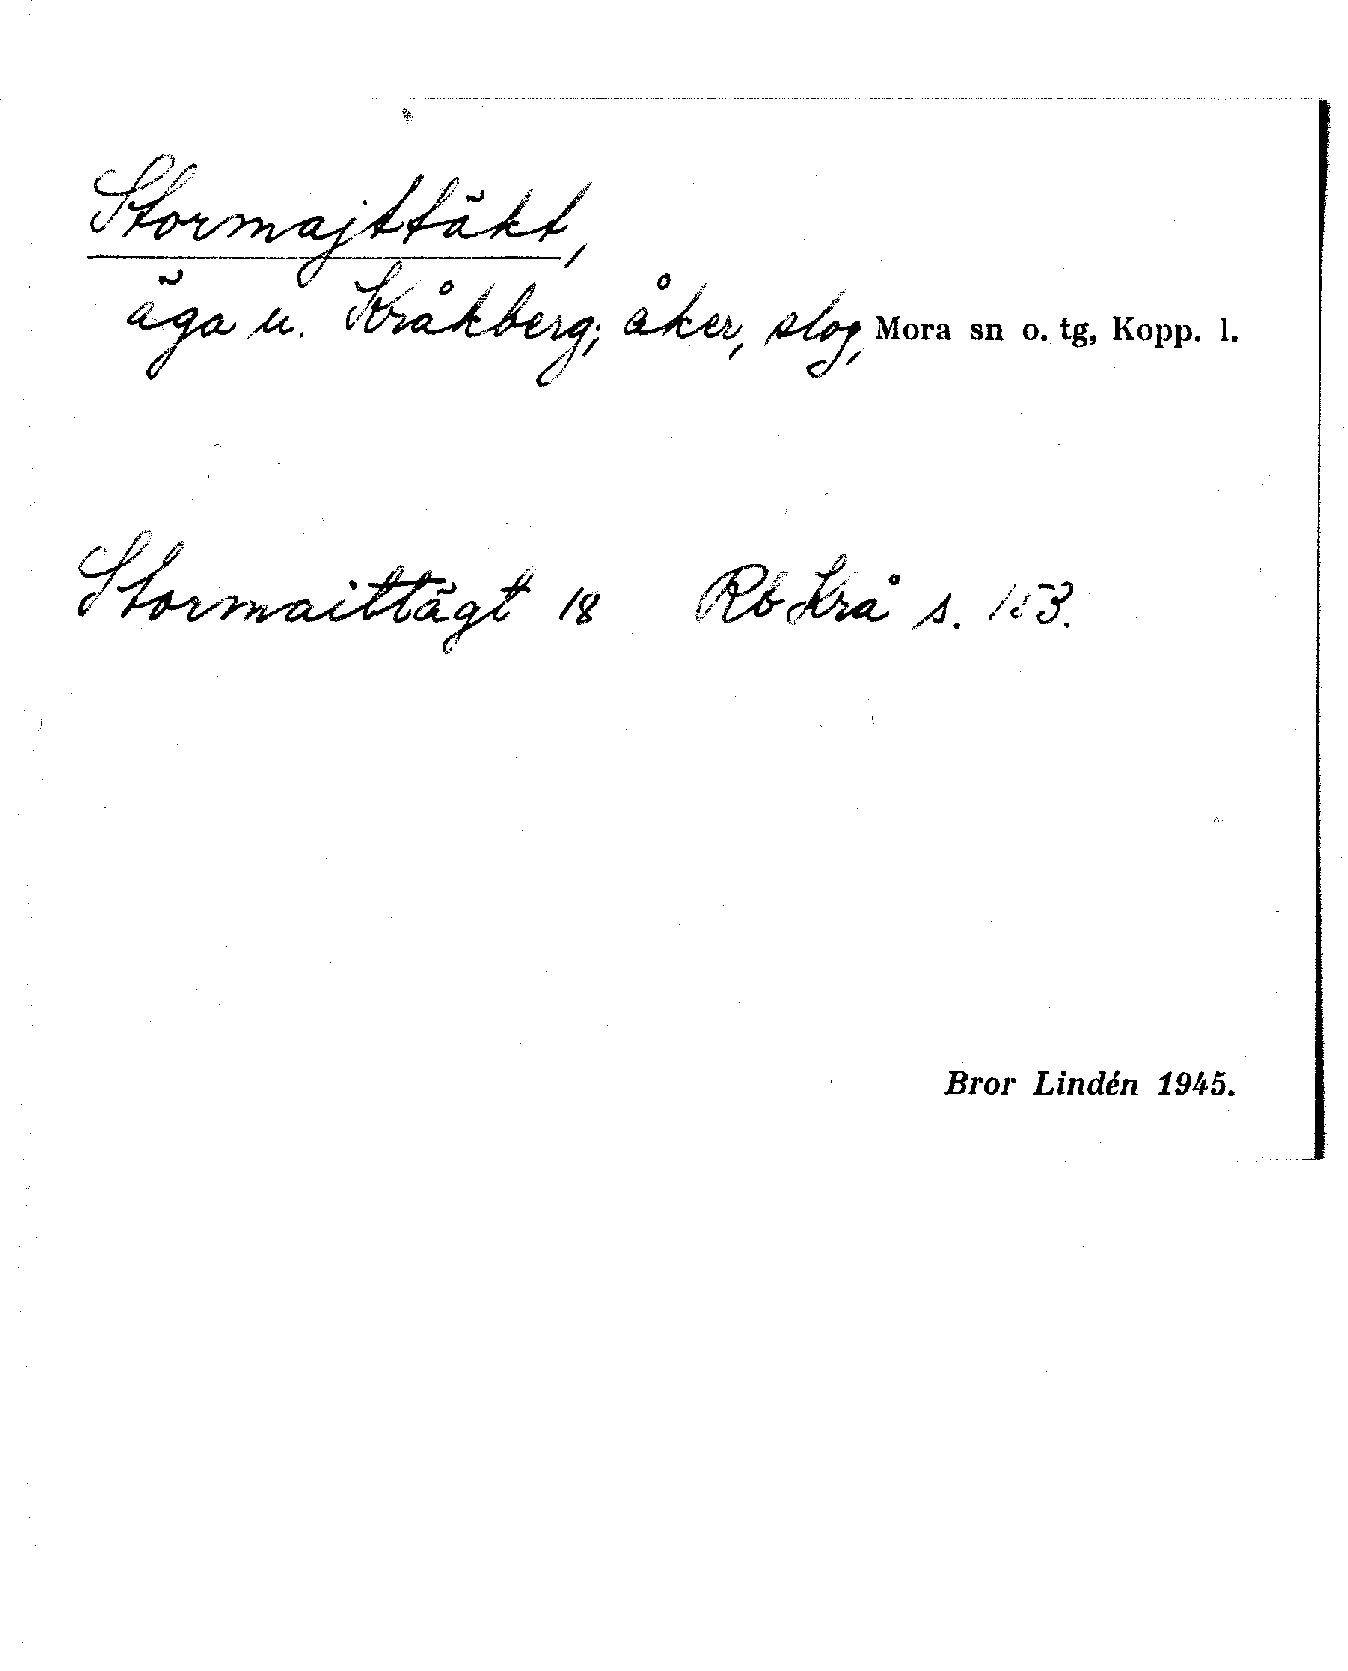 Stormajttäkt,
äga u. Kråkberg; åker, slog, Mora sn o. tg, Kopp. l.
Stormaittägt 18 Rb Krå s. 153.
Bror Lindén 1945.